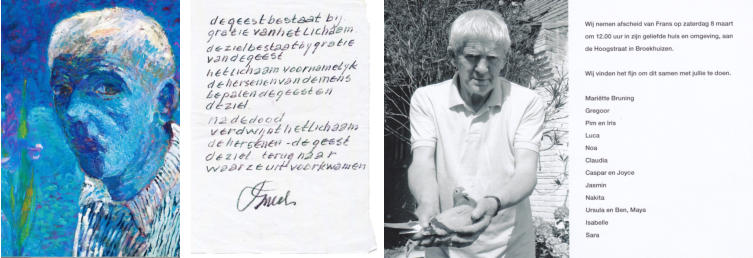 de geest bestaat bij
gratie van het lichaam
de ziel bestaat bij gratie
van de geest
het lichaam voornamelijk
de hersenen van de mens
bepalen de geest en
de ziel
na de dood
verdwijnt het lichaam
de hersenen - de geest
de ziel terug naar
waar ze uit voorkwamen
Wij nemen afscheid van Frans op zaterdag 8 maart
om 12.00 uur in zijn geliefde huis en omgeving, aan
de Hoogstraat in Broekhuizen.
Wij vinden het fijn om dit samen met jullie te doen.
Mariëtte Bruning
Gregoor
Pim en Iris
Luca
Noa
Claudia
Caspar en Joyce
Jasmin
Nakita
Ursula en Ben, Maya
Isabelle
Sara